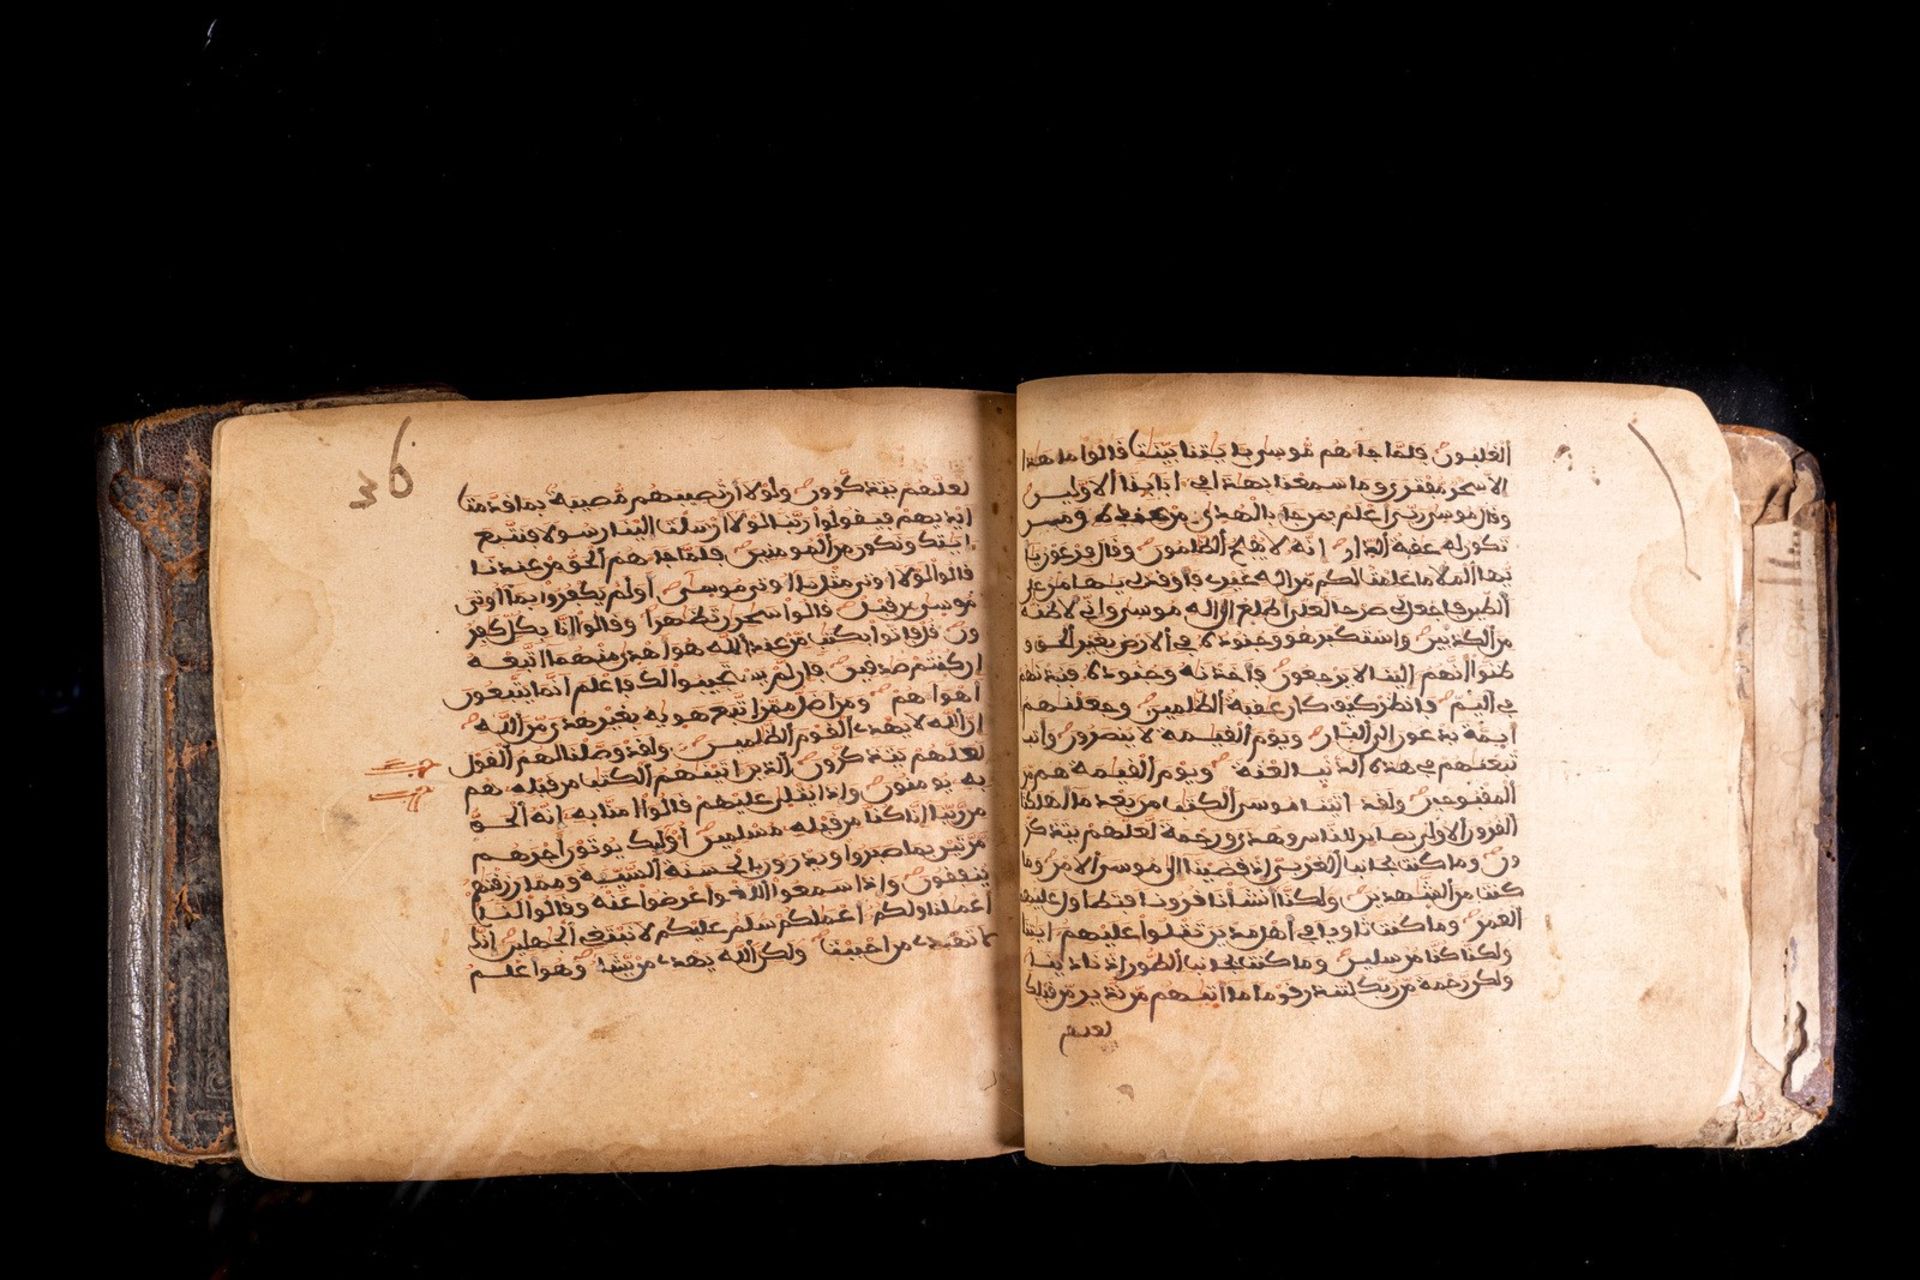 الغلبون فلما جاهم موسى بايتنا بينت قالوا ما هذا
الا سحر مفترى وما سمعنا بهذا في ابائنا الاولين
وقال موسى ربي اعلم بمن جا بالهدى من عنده ومن
تكون له عقبة الدار انه لا يفلح الظلمون وقال فرعون يا
يها الملا ما علمت لكم من اله غيري فاوقد لي يهامن على
الطين فاجعل لي صرحا لعلي اطلع الى اله موسى واني لاظنه
من الكذبين واستكبر هو وجنوده في الارض بغير الحق و
ظنوا انهم الينا لا يرجعون فاخذنه وجنوده فنبذنهم
في اليم فانظر كيف كان عقبة الظلمين وجعلنهم
ايمة يدعون الى النار ويوم القيمة لا ينصرون وا
تبعنهم في هذه الدنيا لعنة ويوم القيمة هم من
المقبوحين ولقد اتينا موسى الكتب من بعد ما اهلكنا
القرون الاولى بصاير للناس وهدى ورحمة لعلهم يتذكر
ون وما كنت بجانب الغربي اذ قضينا الى موسى الامر وما
كنت من الشهدين ولكنا انشانا قرونا فتطاول عليهم
العمر وما كنت ثاويا في اهل مدين تتلوا عليهم ايتنا
ولكنا كنا مرسلين وما كنت بجانب الطور اذ نادينا
ولكن رحمة من ربك لتنذر قوما ما اتيهم من نذير من قبلك
لعلهم
36
لعلهم يتذكرون ولولا ان تصيبهم مصيبة بما قدمت
ايديهم فيقولوا ربنا لولا ارسلت الينا رسولا فنتبع
ايتك ونكون من المومنين فلما جاهم الحق من عندنا
قالوا لولا اوتي مثل ما اوتي موسى اولم يكفروا بما اوتي
موسى من قبل قالوا سحرن تظهرا وقالوا انا بكل كفر
ون قل فاتوا بكتب من عند الله هو اهدى منهما اتبعه
ان كنتم صدقين فان لم يستجيبوا لك فاعلم انما يتبعون
اهواهم ومن اضل ممن اتبع هويه بغير هدى من الله
ان الله لا يهدي القوم الظلمين ولقد وصلنا لهم القول
لعلهم يتذكرون الذين اتينهم الكتب من قبله هم
به يومنون واذا يتلى عليهم قالوا امنا به انه الحق
من ربنا انا كنا من قبله مسلمين اوليك يوتون اجرهم
مرتين بما صبروا ويدرون بالحسنة السيية ومما رزقنهم
ينفقون واذا سمعوا اللغو اعرضوا عنه وقالوا لنا
اعملنا ولكم اعملكم سلم عليكم لا نبتغي الجهلين انك
لا تهدي من احببت ولكن الله يهدي من يشا وهو اعلم
حزب
حزب